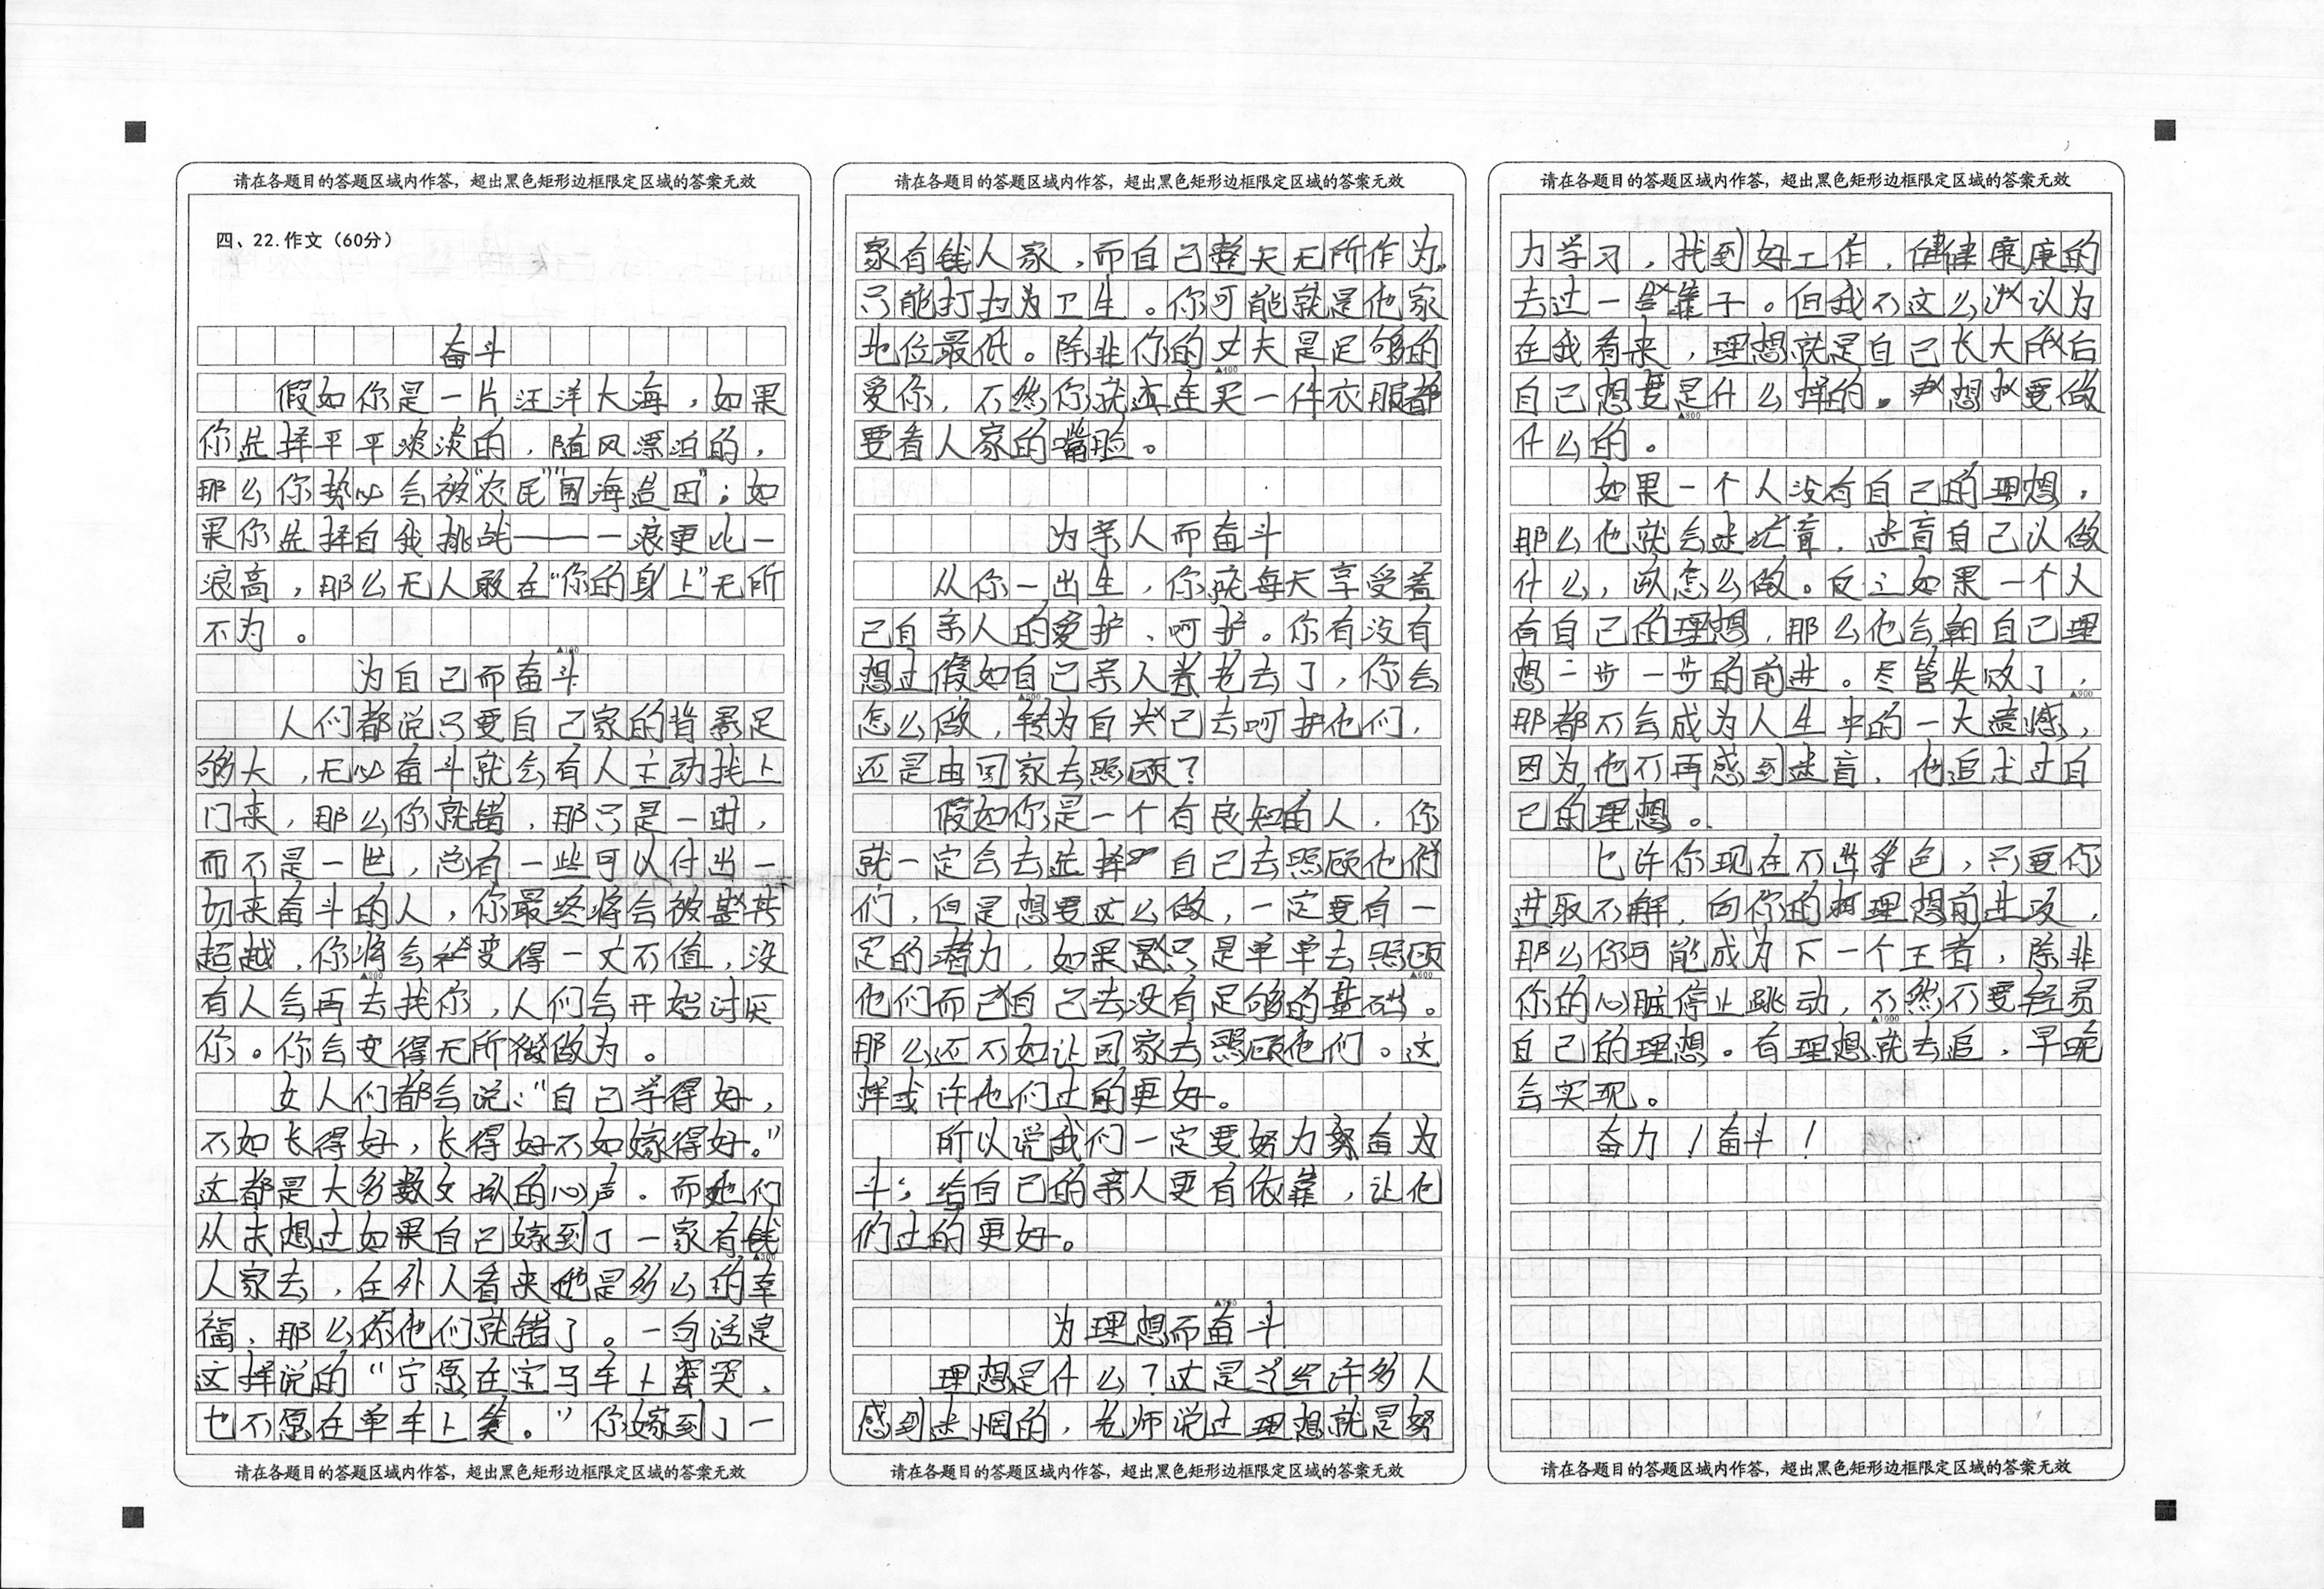 请在各题目的答题区域内作答，超出黑色矩形边框限定区域的答案无效
四、22.作文（60分）
奋斗
假如你是一片汪洋大海，如果
你选择平平淡淡的，随风漂泊的，
那么你势必会被“农民”“围海造田”；如
果你选择自我挑战——一浪更比一
浪高，那么无人敢在“你的身上”无所
不为。
▲100
为自己而奋斗
人们都说只要自己家的背景足
够大，无必奋斗就会有人主动找上
门来，那么你就错，那只是一时，
而不是一世，总有一些可以付出一
切来奋斗的人，你最终将会被其
超越，你将会变得一文不值，没
▲200
有人会再去找你，人们会开始讨厌
你。你会变得无所做为。
女人们都会说：“自己学得好，
不如长得好，长得好不如嫁得好。”
这都是大多数女孩的心声。而她们
从未想过如果自己嫁到了一家有钱
▲300
人家去，在外人看来她是多么的幸
福，那么你他们就错了。一句话是
这样说的“宁愿在宝马车上哭，
也不愿在单车上笑。”你嫁到了一
请在各题目的答题区域内作答，超出黑色矩形边框限定区域的答案无效
请在各题目的答题区域内作答，超出黑色矩形边框限定区域的答案无效
家有钱人家，而自己整天无所作为，
只能打扫为卫生。你可能就是他家
地位最低。除非你的丈夫是足够的
▲400
爱你，不然你就连买一件衣服都
要看人家的嘴脸。
为亲人而奋斗
从你一出生，你就每天享受着
己自亲人的爱护、呵护。你有没有
想过假如自己亲人老去了，你会
▲500
怎么做，转为自己去呵护他们，
还是由国家去照顾？
假如你是一个有良知的人，你
就一定会去选择自己去照顾他们
们，但是想要这么做，一定要有一
定的潜力，如果只是单单去照顾
▲600
他们而自己去没有足够的基础。
那么还不如让国家去照顾他们。这
样或许他们过的更好。
所以说我们一定要努力奋为
斗；给自己的亲人更有依靠，让他
们过的更好。
▲700
为理想而奋斗
理想是什么？这是曾经许多人
感到迷惘的，老师说过理想就是努
请在各题目的答题区域内作答，超出黑色矩形边框限定区域的答案无效
请在各题目的答题区域内作答，超出黑色矩形边框限定区域的答案无效
力学习，找到好工作，健健康康的
去过一辈子。但我不这么认为
在我看来，理想就是自己长大以后
自己想要是什么样的。想要做
▲800
什么的。
如果一个人没有自己的理想，
那么他就会迷茫盲，迷盲自己认做
什么，该怎么做。反之如果一个人
有自己的理想，那么他会朝自己理
想一步一步的前进。尽管失败了，
▲900
那都不会成为人生中的一大遗憾，
因为他不再感到迷盲，他追求过自
己的理想。
也许你现在不出色，只要你
进取不懈，向你的理想前进攻，
那么你可能成为下一个王者，除非
你的心脏停止跳动，不然不要轻易
▲1000
自己的理想。有理想就去追，早晚
会实现。
奋力！奋斗！
请在各题目的答题区域内作答，超出黑色矩形边框限定区域的答案无效